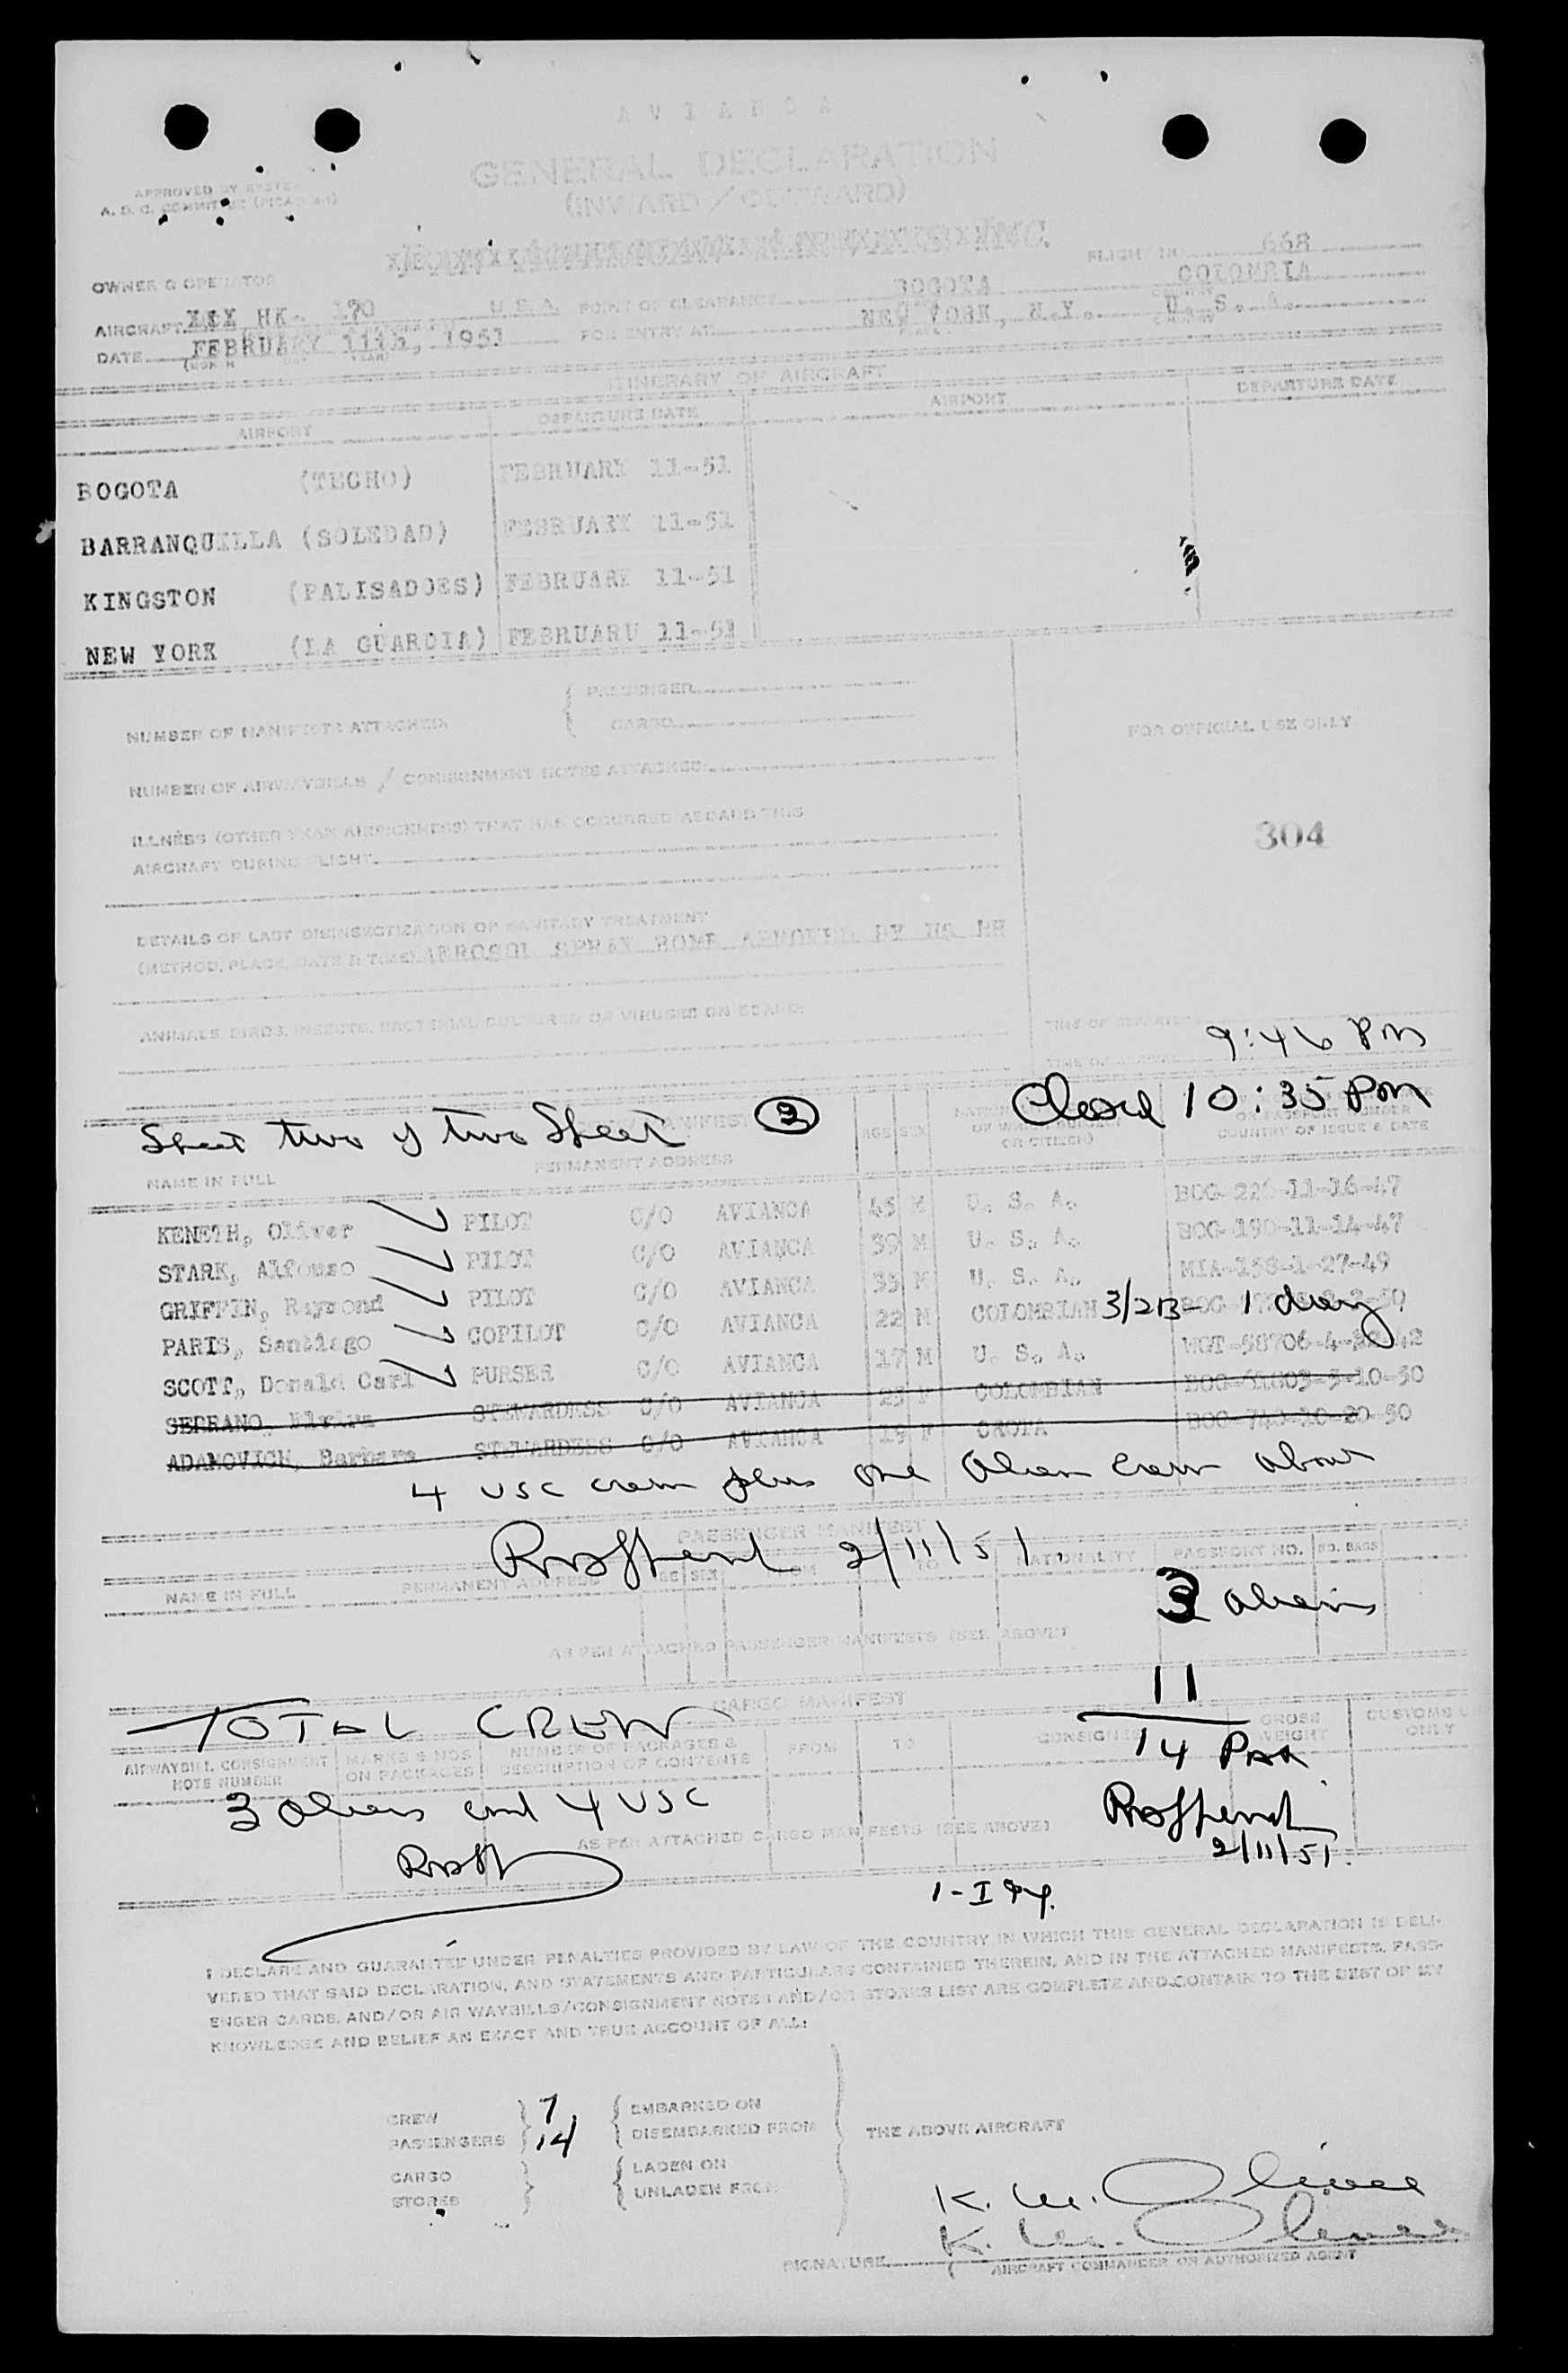 A V I A N C A
GENERAL DECLARATION
(INWARD / OUTWARD)
APPROVED BY
A. D. C. COMMITTEE
OWNER & OPERATOR
FLIGHT NO. 668
AIRCRAFT XXX HK- 170 U.S.A. POINT OF CLEARANCE BOGOTA COLOMBIA
FOR ENTRY AT NEW YORK, N.Y. U. S. A.
DATE FEBRUARY 11th, 1951
ITINERARY OF AIRCRAFT
AIRPORT DEPARTURE DATE AIRPORT DEPARTURE DATE
BOGOTA (TECHO) FEBRUARY 11-51
BARRANQUILLA (SOLEDAD) FEBRUARY 11-51
KINGSTON (PALISADOES) FEBRUARY 11-51
NEW YORK (LA GUARDIA) FEBRUARU 11-51
NUMBER OF MANIFESTS ATTACHED: { PASSENGER
CARGO
FOR OFFICIAL USE ONLY
NUMBER OF AIRWAYBILLS / CONSIGNMENT NOTES ATTACHED:
ILLNESS (OTHER THAN AIRSICKNESS) THAT HAS OCCURRED ABOARD THIS
AIRCRAFT DURING FLIGHT.
304
DETAILS OF LAST DISINSECTIZATION OR SANITARY TREATMENT
(METHOD, PLACE, DATE & TIME) AEROSOL SPRAY BOMB
ANIMALS, BIRDS, INSECTS, BACTERIAL CULTURES OR VIRUSES ON BOARD:
9:46 PM
Closed 10:35 PM
Sheet two of two Sheet 2
MANIFEST
NAME IN FULL PERMANENT ADDRESS AGE SEX
OR CITIZEN) COUNTRY OF ISSUE & DATE
KENETH, Oliver PILOT C/O AVIANCA 45 M U. S. A. BOG-226-11-16-47
STARK, Alfonso PILOT C/O AVIANCA 39 M U. S. A. BOG-190-11-14-47
GRIFFIN, Raymond PILOT C/O AVIANCA 33 M U. S. A. MIA-158-1-27-49
PARIS, Santiago COPILOT C/O AVIANCA 22 M COLOMBIAN 3/2B- 1 day
SCOTT, Donald Carl PURSER C/O AVIANCA 17 M U. S. A.
SERRANO, Elvira STEWARDESS C/O AVIANCA 23 F COLOMBIAN BOG-61803-5-10-50
ADAMOVICH, Barbara STEWARDESS C/O AVIANCA 19 F CROTA BOG-740-10-20-50
4 USC crew plus one Alien crew above
PASSENGER MANIFEST
2/11/51
NAME IN FULL PERMANENT ADDRESS AGE SEX FROM TO NATIONALITY PASSPORT NO. NO. BAGS
3 aliens
AS PER ATTACHED PASSENGER MANIFESTS (SEE ABOVE)
11
CARGO MANIFEST
TOTAL CREW
14 Pax
AIRWAYBILL CONSIGNMENT NOTE NUMBER MARKS & NOS ON PACKAGES NUMBER OF PACKAGES & DESCRIPTION OF CONTENTS FROM TO CONSIGNEE GROSS WEIGHT CUSTOMS USE ONLY
3 aliens and 4 USC
AS PER ATTACHED CARGO MANIFESTS (SEE ABOVE)
2/11/51.
I DECLARE AND GUARANTEE UNDER PENALTIES PROVIDED BY LAW OF THE COUNTRY IN WHICH THIS GENERAL DECLARATION IS DELI-
VERED THAT SAID DECLARATION, AND STATEMENTS AND PARTICULARS CONTAINED THEREIN, AND IN THE ATTACHED MANIFESTS, PASS-
ENGER CARDS, AND/OR AIR WAYBILLS/CONSIGNMENT NOTES AND/OR STORES LIST ARE COMPLETE AND CONTAIN TO THE BEST OF MY
KNOWLEDGE AND BELIEF AN EXACT AND TRUE ACCOUNT OF ALL:
CREW 7 EMBARKED ON
PASSENGERS 14 DISEMBARKED FROM THE ABOVE AIRCRAFT
CARGO LADEN ON
STORES UNLADEN FROM
K. W. Oliver
K. W. Oliver
SIGNATURE
AIRCRAFT COMMANDER OR AUTHORIZED AGENT